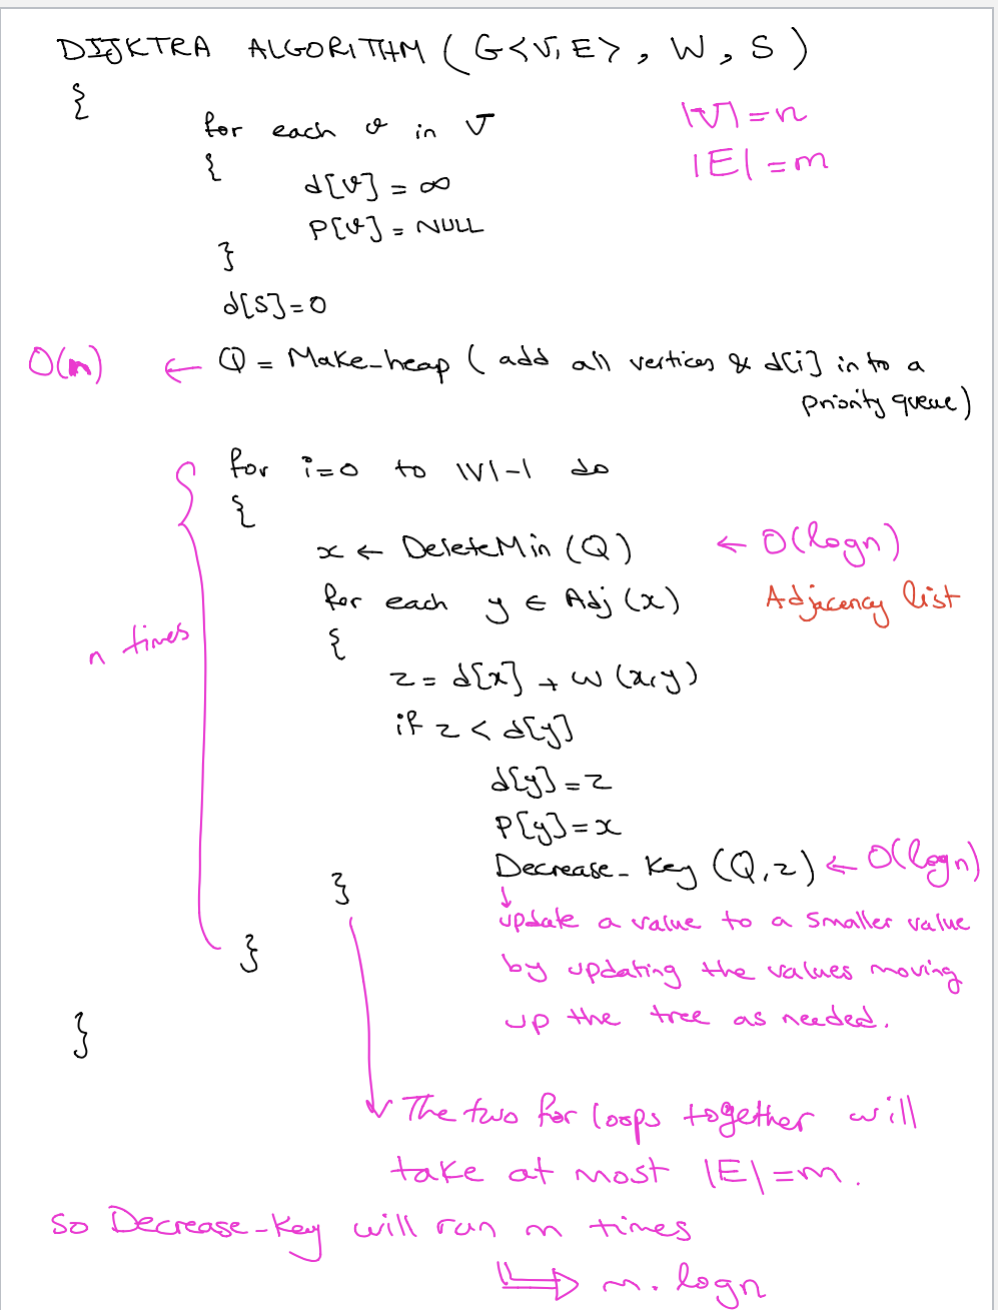 DIJKTRA ALGORITHM (G<V,E> , W , S )
{
for each v in V
|V| = n
{
|E| = m
d[v] = ∞
P[v] = NULL
}
d[S] = 0
O(n) ← Q = Make_heap ( add all vertices & d[i] in to a
priority queue)
for i=0 to |V|-1 do
{
x ← DeleteMin (Q) ← O(logn)
for each y ∈ Adj (x) Adjacency list
n times
{
z = d[x] + w (x,y)
if z < d[y]
d[y] = z
P[y] = x
Decrease_ Key (Q,z) ← O(logn)
}
↓
update a value to a smaller value
}
by updating the values moving
up the tree as needed.
}
The two for loops together will
take at most |E| = m.
so Decrease_Key will run m times
⇒ m. logn